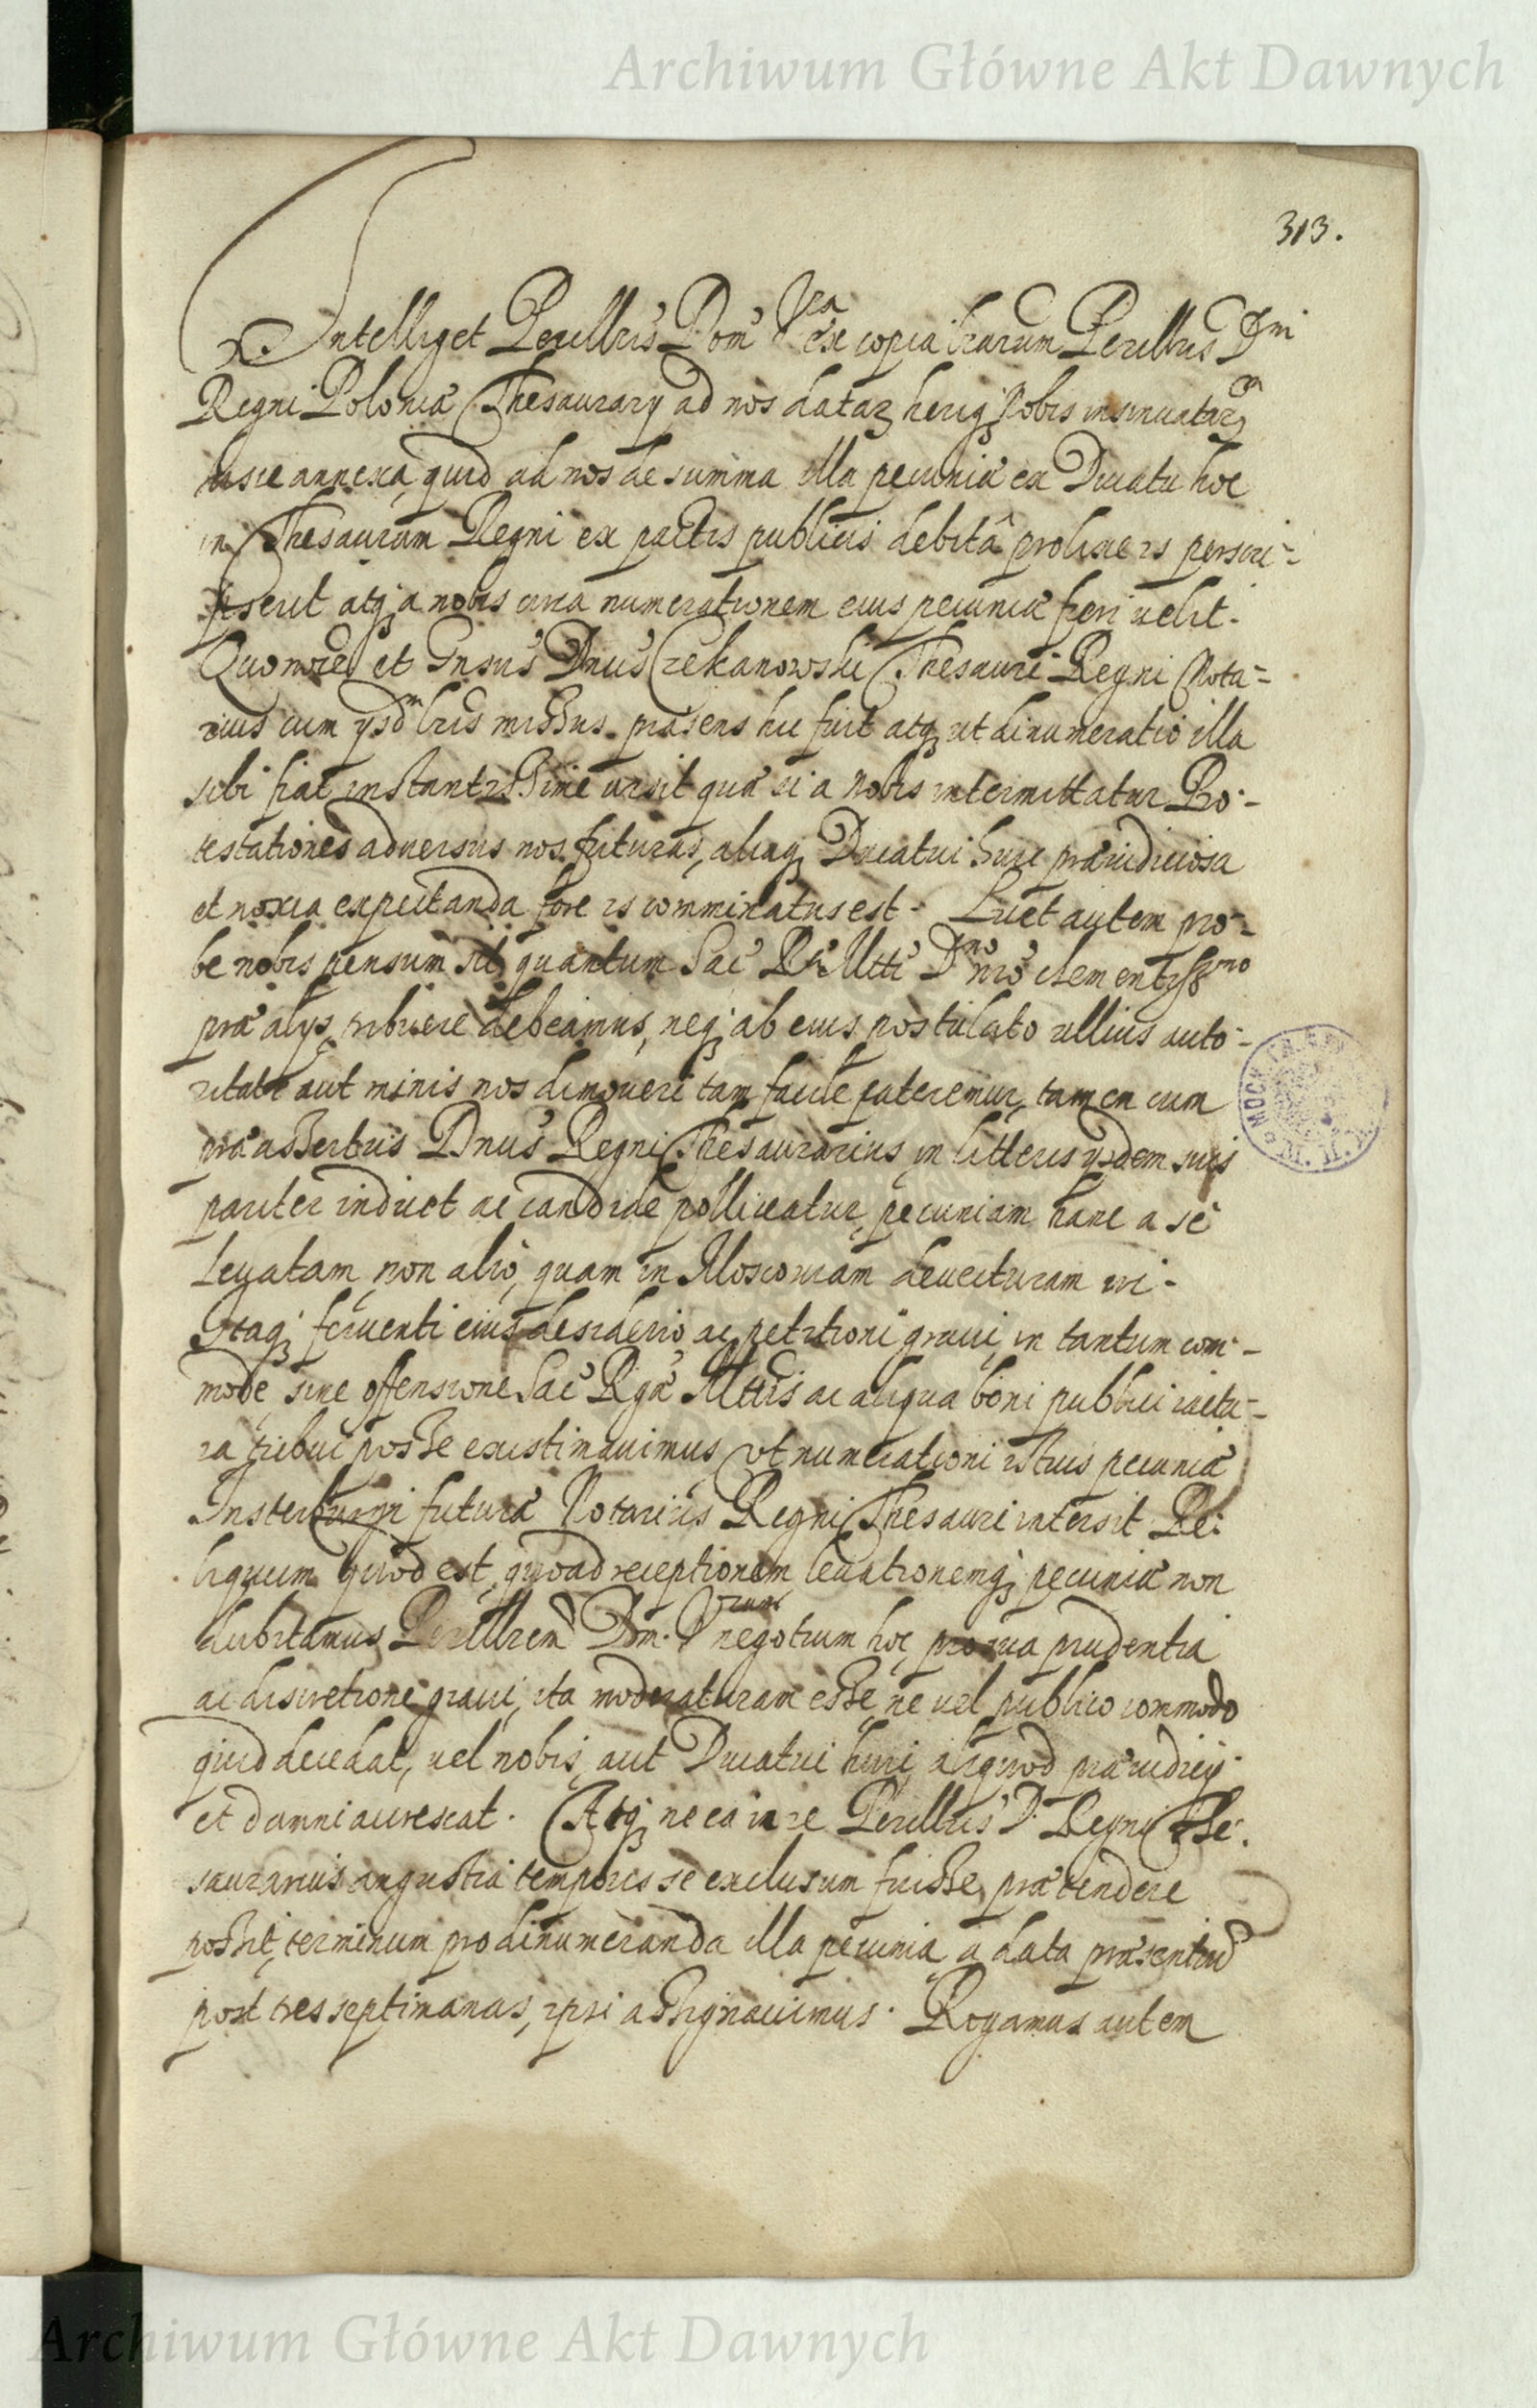 Archiwum Główne Akt Dawnych
313.
Intelliget Perillris Dom. Vra ex copia lrarum Perillris Dni
Regni Poloniæ Thesaurarij ad nos datarz heriqz Nobis insinuatarz
hisce annexa, quid ad nos de summa illa pecuniæ ex Ducatu hoc
in Thesaurum Regni ex pactis publicis debitâ prolixe is perscri-
pserit atqz a nobis circa numerationem eius pecuniæ fieri uelit.
Quo noie et Gnsus Dnus Czekanowski Thesauri Regni Nota-
rius cum ijsdm lris missus præsens hic fuit atqz ut dinumeratio illa
sibi fiat instantissime ursit quæ si a Nobis intermittatur Pro-
testationes aduersus nos futuras, aliaqz Ducatui huic præiudiciosa
et noxia expectanda fore is comminatus est. Licet autem pro-
be nobis pensum sit, quantum Sac Ræ Mtti Dno nro clementissimo
præ alijs tribuere debeamus, neqz ab eius postulato ullius auto-
ritate aut minis nos dimoueri tam facile pateremur, tamen cum
præassertus Dnus Regni Thesaurarius in litteris ijsdem suis
pariter indicet ac candide polliceatur, pecuniam hanc a se
leuatam non alio, quam in Moscouiam deuecturam iri.
Itaqz feruenti eius desiderio ac petitioni graui, in tantum com-
mode, sine offensione Sac Rgæ Mttis ac aliqua boni publici iactu-
ra tribui posse existimauimus, vt numerationi istius pecuniæ
Insterburgi futuræ Notarius Regni Thesauri intersit. Re-
liquum quod est, quoad receptionem, leuationemqz pecuniæ non
dubitamus Perillrem Dm. Vram negotium hoc, pro sua prudentia
ac discretione graui, ita moderaturam esse, ne uel publico commodo
quid decedat, uel nobis, aut Ducatui huic aliquod præiudicij
et damni accrescat. Atqz ne ea in re Perillris D. Regni The-
saurarius angustia temporis se exclusum fuisse, prætendere
possit, terminum pro dinumeranda illa pecunia, a data præsentiu
post tres septimanas, ipsi assignauimus. Rogamus autem
Archiwum Główne Akt Dawnych